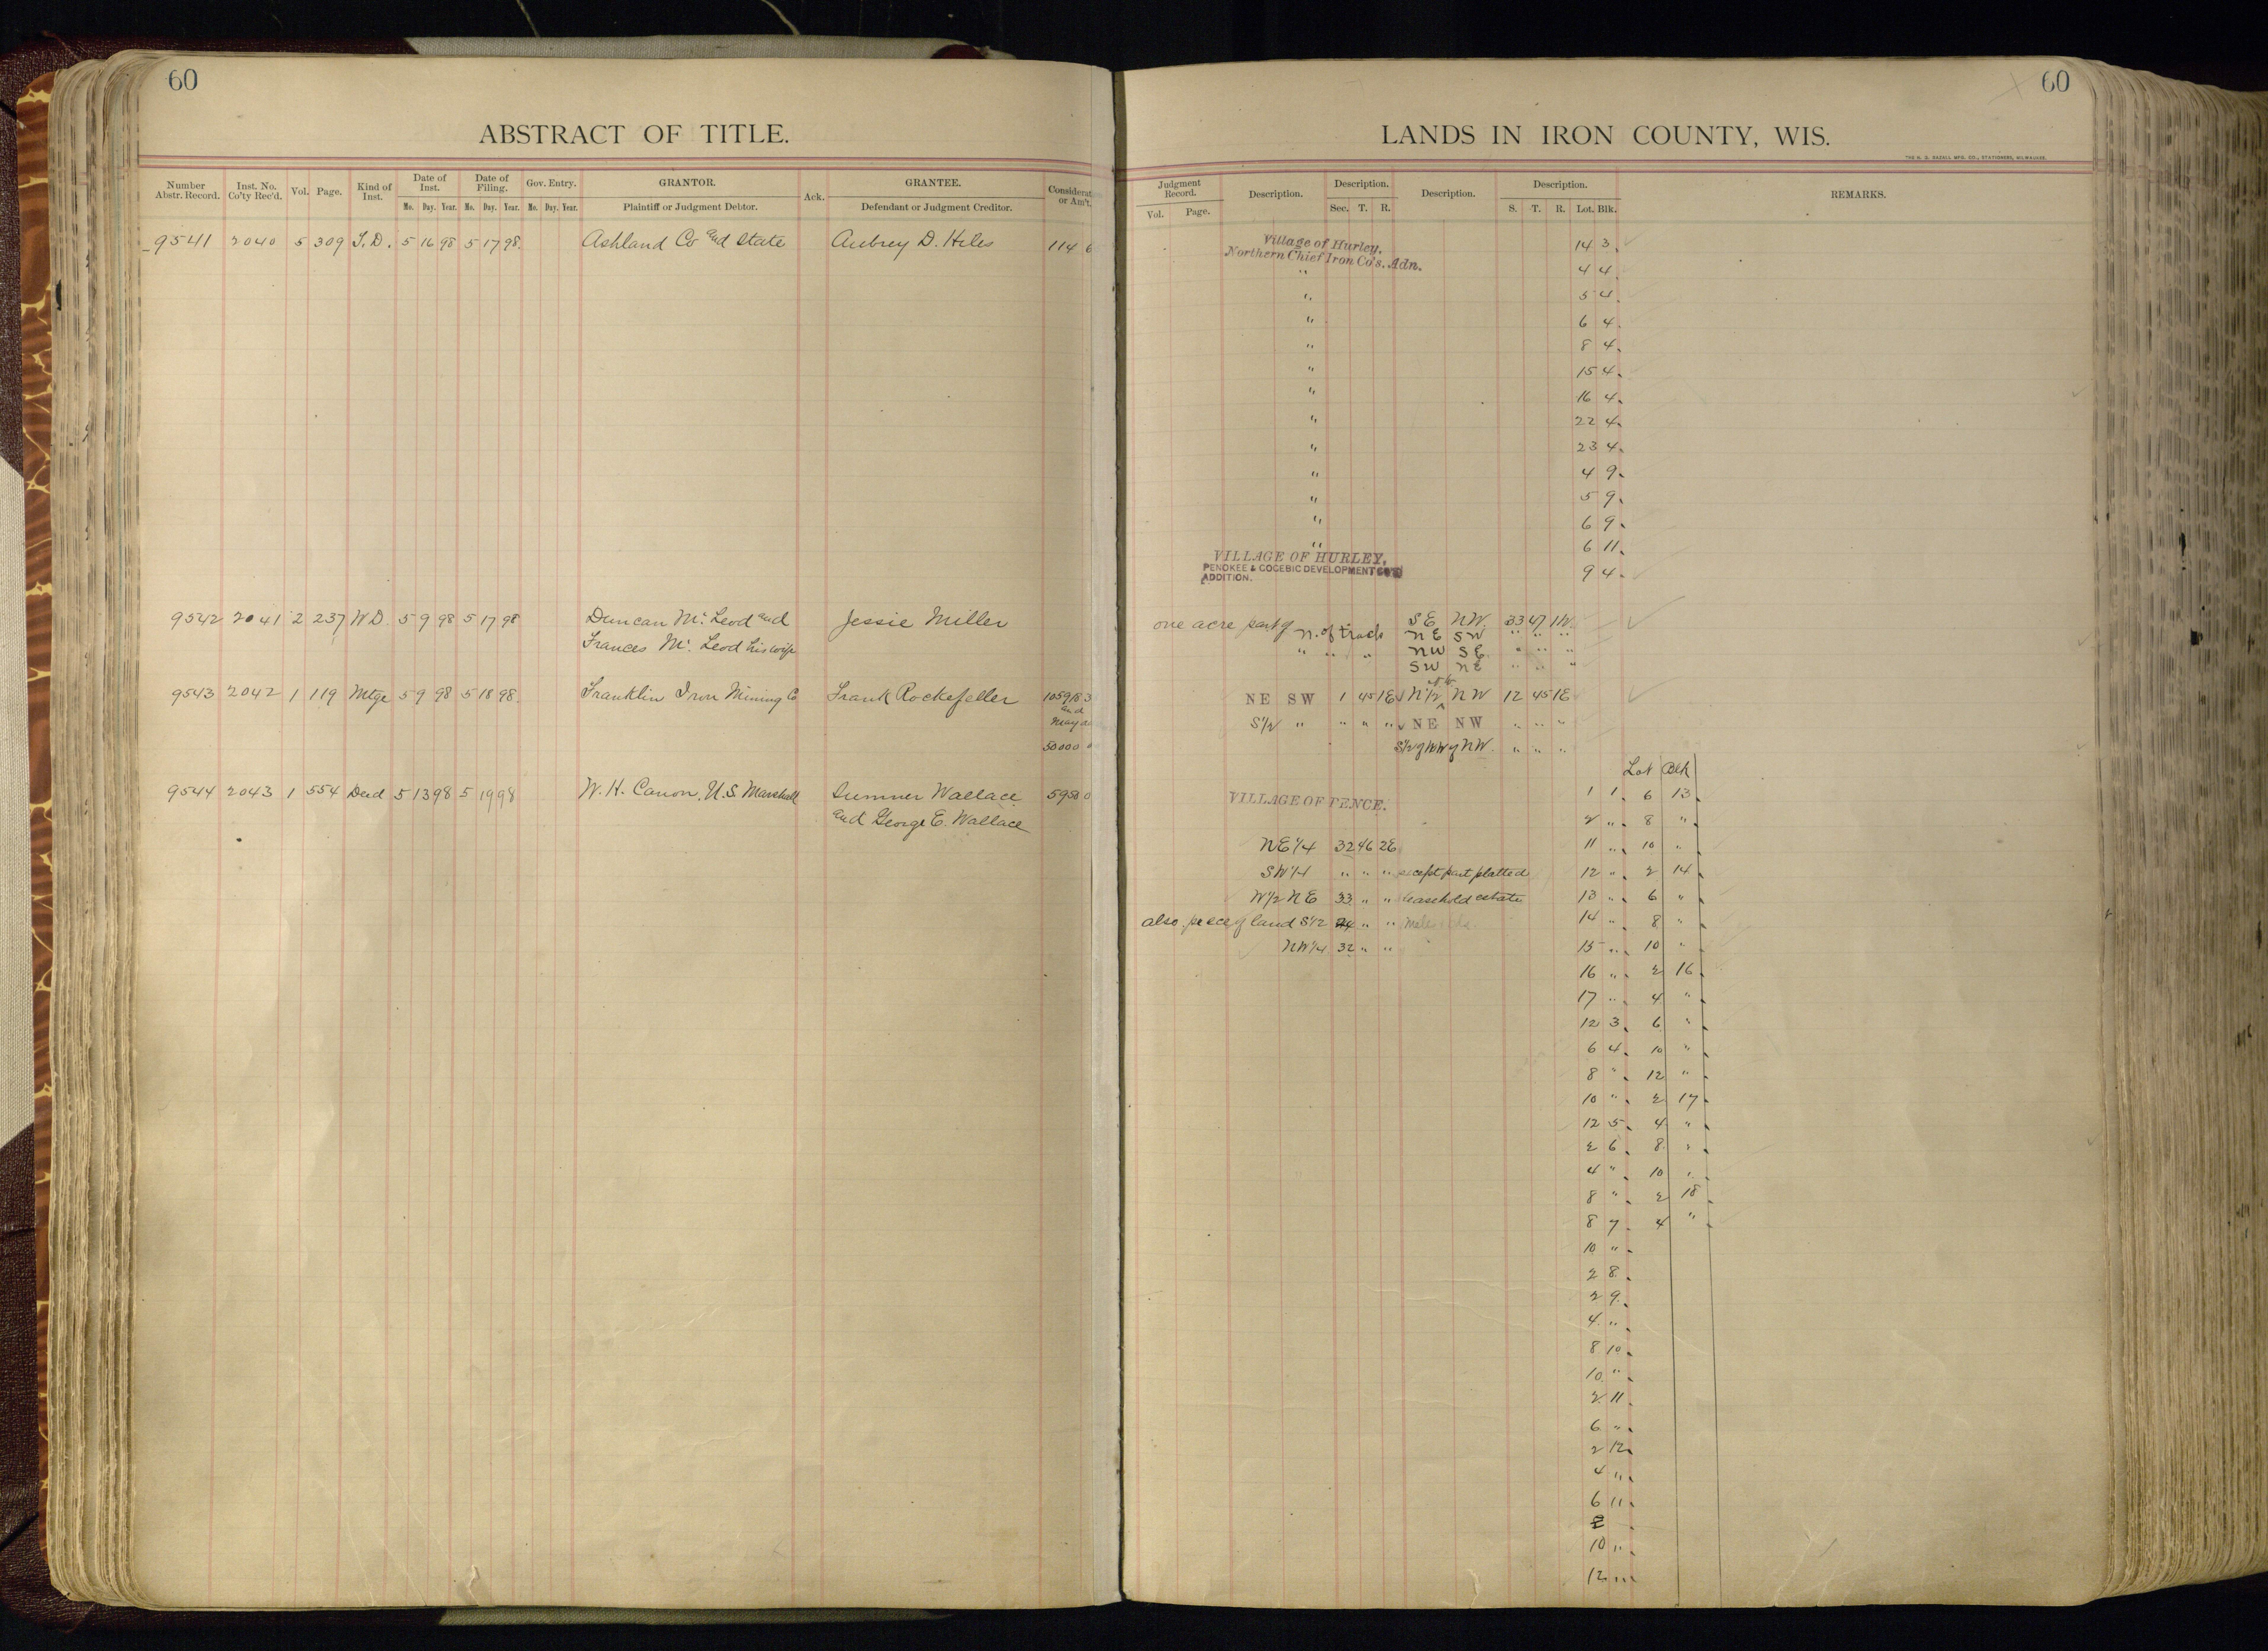 60
ABSTRACT OF TITLE.
Number Abstr. Record. Inst. No. Co'ty Rec'd. Vol. Page. Kind of Inst. Date of Inst. Date of Filing. Gov. Entry. GRANTOR. Ack. GRANTEE. Considerat or Am't.
Mo. Day. Year. Mo. Day. Year. Mo. Day. Year. Plaintiff or Judgment Debtor. Defendant or Judgment Creditor.
9541 2040 5 309 T.D. 5 16 98 5 17 98. Ashland Co and State Aubrey D. Hiles 114 6
9542 2041 2 237 W D 5 9 98 5 17 98 Duncan Mc Leod and Jessie Miller
Frances Mc Leod his wife
9543 2042 1 119 Mtge 5 9 98 5 18 98. Franklin Iron Mining Co Frank Rockefeller 105918 3
and
50000 0
9544 2043 1 554 Deed 5 13 98 5 19 98 W. H. Canon, U.S. Marshall Sumner Wallace 5950 0
and George E. Wallace
60
LANDS IN IRON COUNTY, WIS.
Judgment Record. Description. Description. Description. Description. REMARKS.
Vol. Page. Sec. T. R. S. T. R. Lot. Blk.
Village of Hurley. 14 3
Northern Chief Iron Co's. Adn.
" 4 4
" 5 4
" 6 4
" 8 4
" 15 4
" 16 4
" 22 4
" 23 4
" 4 9
" 5 9
" 6 9
" 6 11
VILLAGE OF HURLEY,
PENOKEE & GOGEBIC DEVELOPMENT CO'S 9 4
ADDITION.
one acre part of SE NW 33 47 1W
N. of track NE SW " " "
" " " NW SE " " "
SW NE " " "
NE SW 1 45 1E N1/2 NW 12 45 1E
S1/2 " " " " NE NW " " "
S1/2 of NW of NW " " "
Lot Blk
VILLAGE OF PENCE. 1 1 6 13
2 " 8 "
NE1/4 32 46 2E 11 " 10 "
SW1/4 " " " except part platted 12 " 2 14
W1/2 NE 33 " " leasehold estate 13 " 6 "
also piece of land S1/2 " " 14 " 8 "
NW1/4 32 " " 15 " 10 "
16 " 2 16
17 " 4 "
12 3 6 "
6 4 10 "
8 " 12 "
10 " 2 17
12 5 4 "
2 6 8 "
4 " 10 "
8 " 2 18
8 7 4 "
10 "
2 8
2 9
4 "
8 10
10 "
2 11
6 "
2 12
4 "
6 11
10 "
12 "